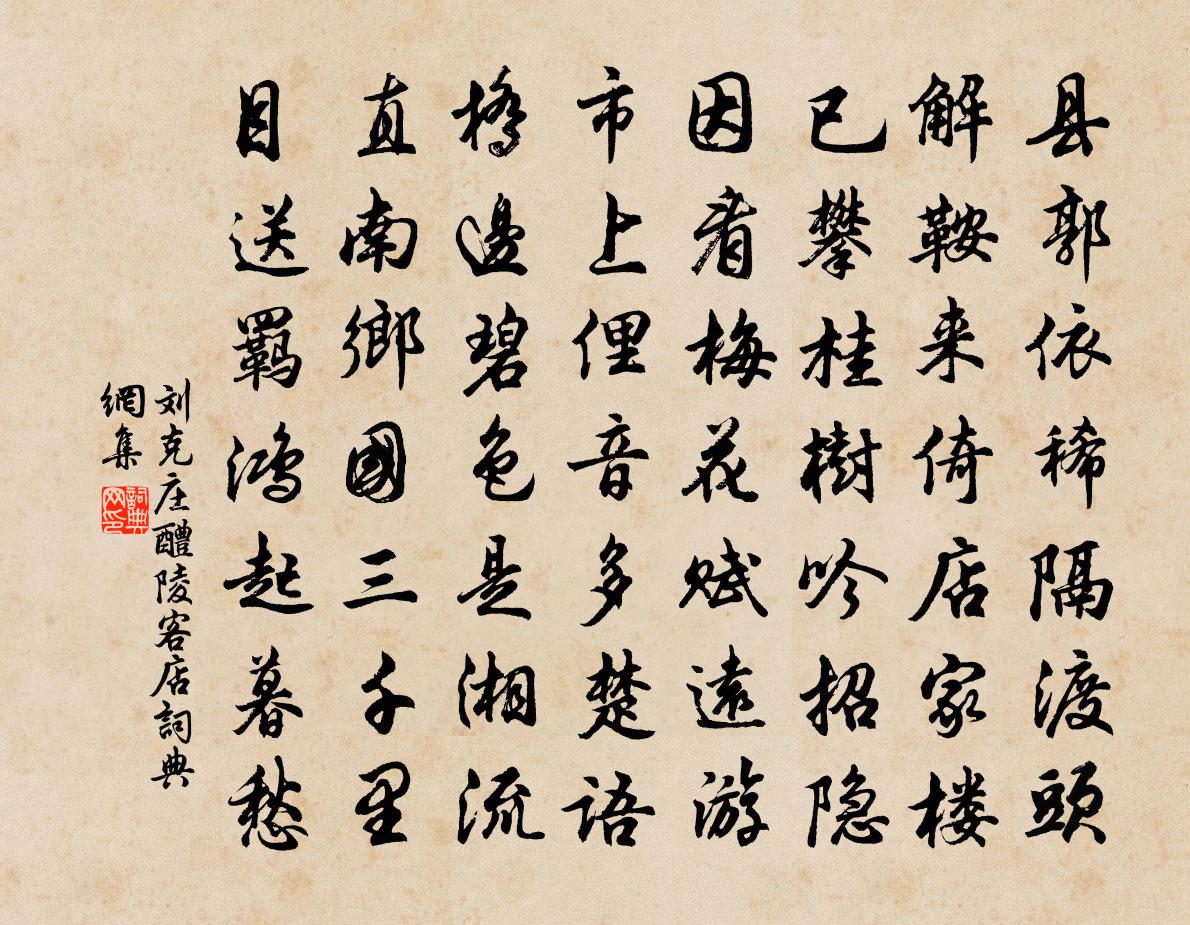 县郭依稀隔渡頭
解鞍来倚店家楼
已攀桂樹吟招隐
因看梅花赋遠游
市上俚音多楚语
橋邊碧色是湘流
直南鄉國三千里
目送羁鸿起暮愁
刘克庄醴陵客店詞典
網集
詞典网印